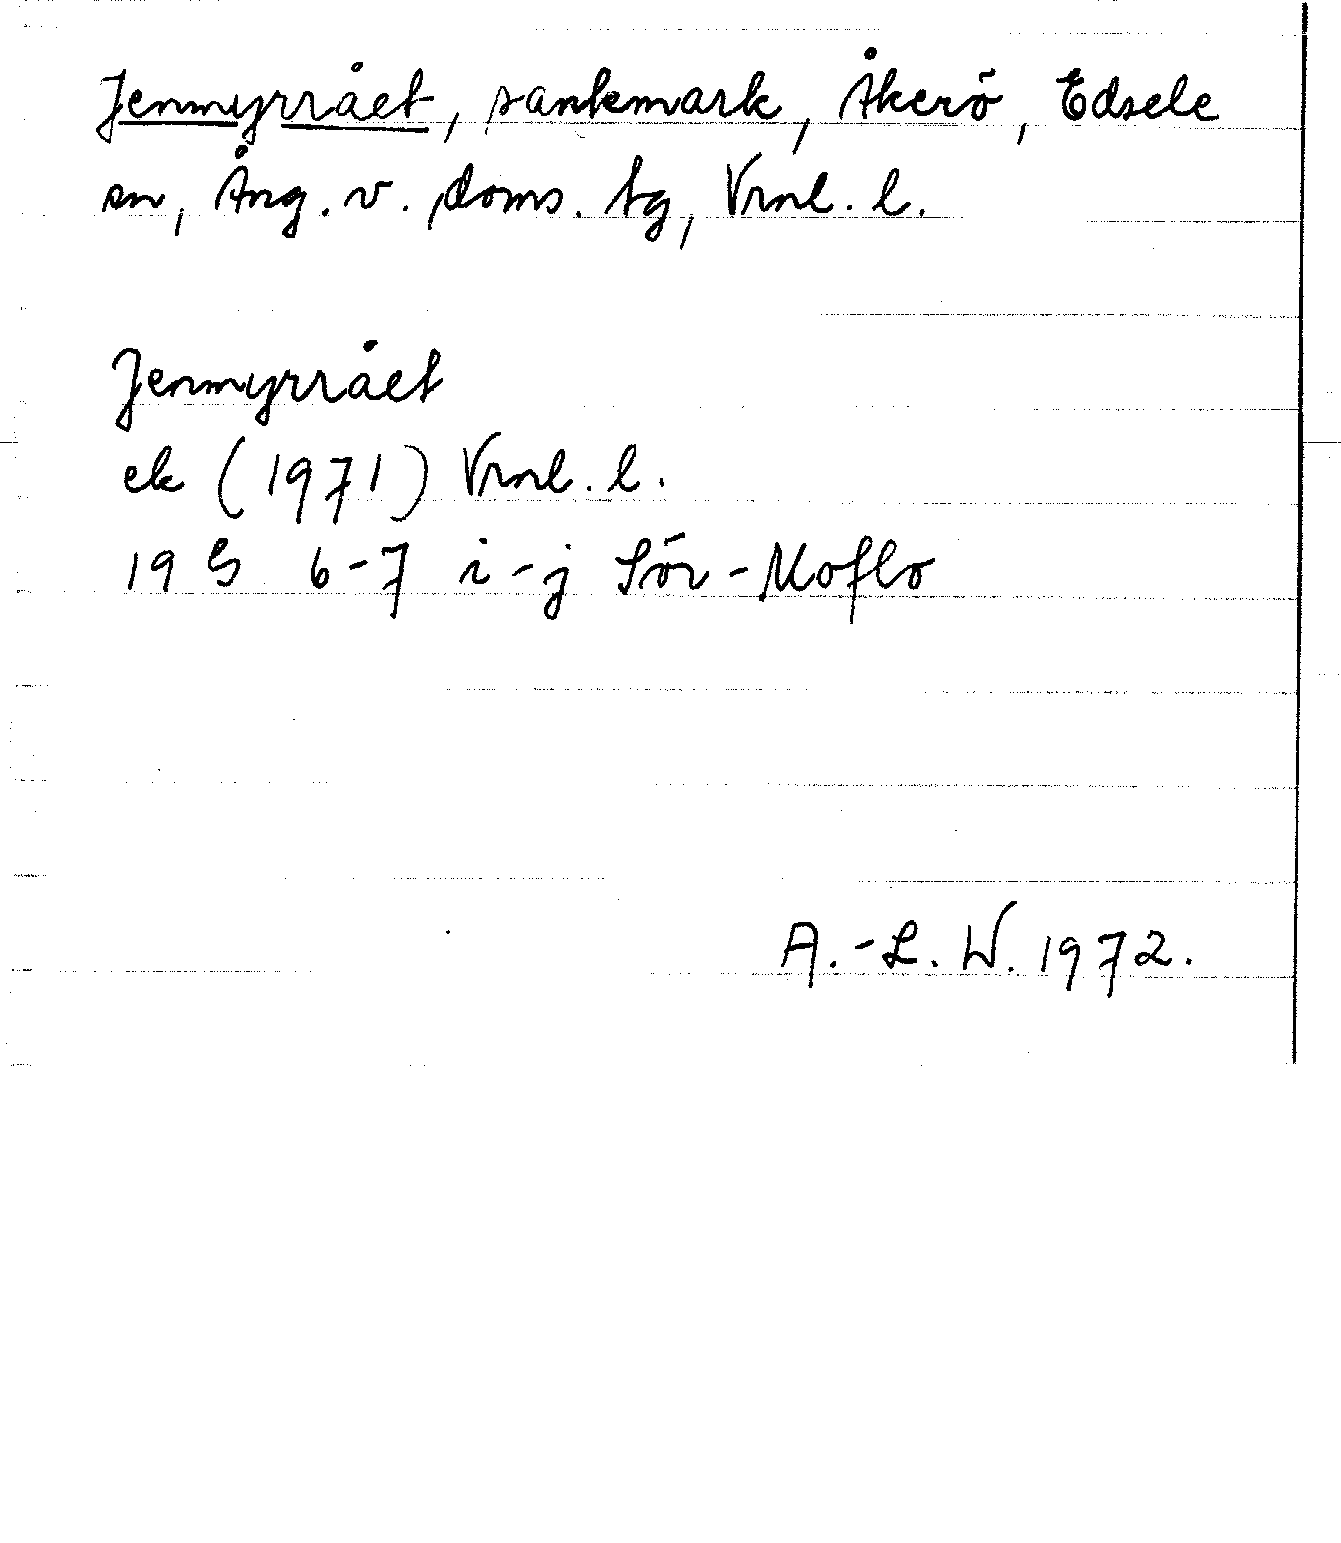 Jenmyrrået, sankmark, Åkerö, Edsele
sn, Ång. v. doms. tg, Vrnl. l.
Jenmyrrået
ek (1971) Vrnl. l.
19 G 6-7 i-j Sör-Moflo
A.-L. W. 1972.